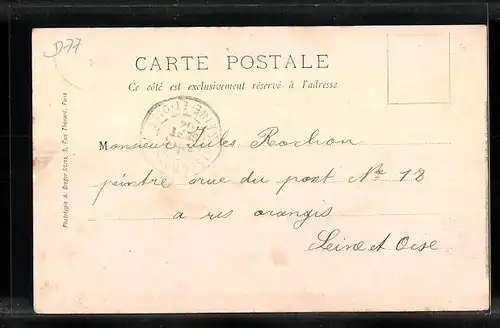 D77
CARTE POSTALE
Ce côté est exclusivement réservé à l'adresse
SEINE-ET-OISE
Monsieur Jules Rochon
peintre rue du pont No 18
a ris orangis
Seine et Oise
Phototypie A. Breger frères, 9, Rue Thénard, Paris